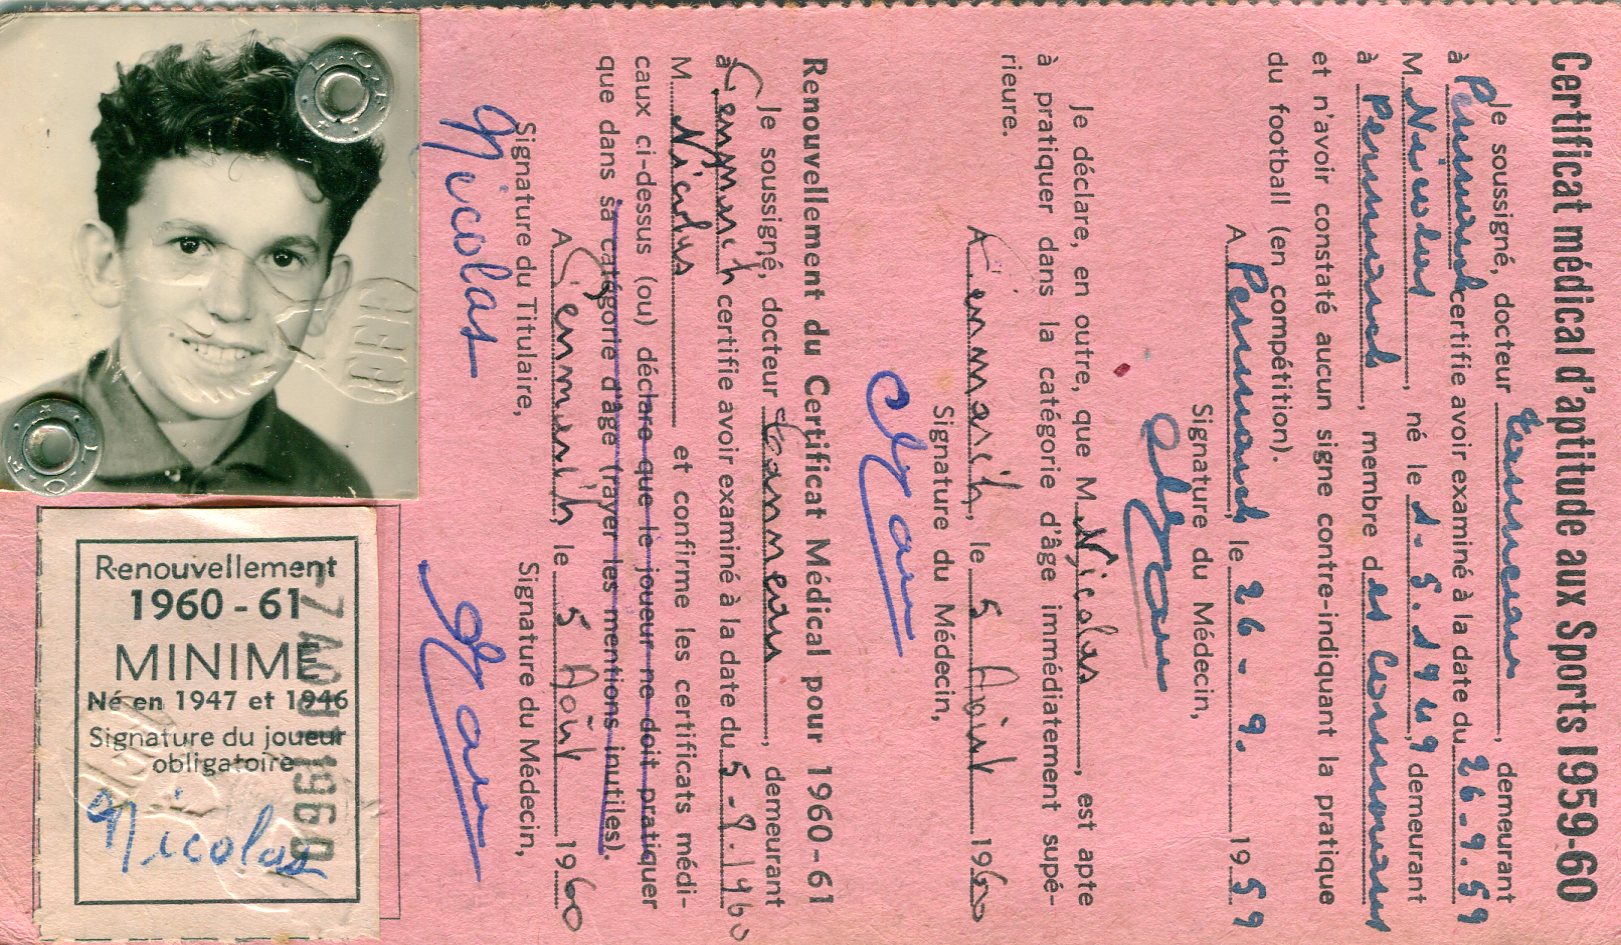 Certificat médical d'aptitude aux Sports 1959-60
Je soussigné, docteur Tonneau, demeurant
à certifie avoir examiné à la date du 26-9.59
M. Nicolas, né le 1.5.1949, demeurant
à, membre des
et n'avoir constaté aucun signe contre-indiquant la pratique
du football (en compétition).
A, le 26-9. 1959
Signature du Médecin,
Je déclare, en outre, que M. Nicolas, est apte
à pratiquer dans la catégorie d'âge immédiatement supé-
rieure.
A, le 5 Août 1960
Signature du Médecin,
Renouvellement du Certificat Médical pour 1960-61
Je soussigné, docteur Tonneau, demeurant
à certifie avoir examiné à la date du 5-8.1960
M. Nicolas et confirme les certificats médi-
caux ci-dessus (ou) déclare que le joueur ne doit pratiquer
que dans sa catégorie d'âge (rayer les mentions inutiles).
A, le 5 Août 1960
Signature du Titulaire, Signature du Médecin,
Nicolas
Renouvellement
1960-61
MINIME
Né en 1947 et 1946
Signature du joueur
obligatoire
Nicolas
-7 AOU 1960